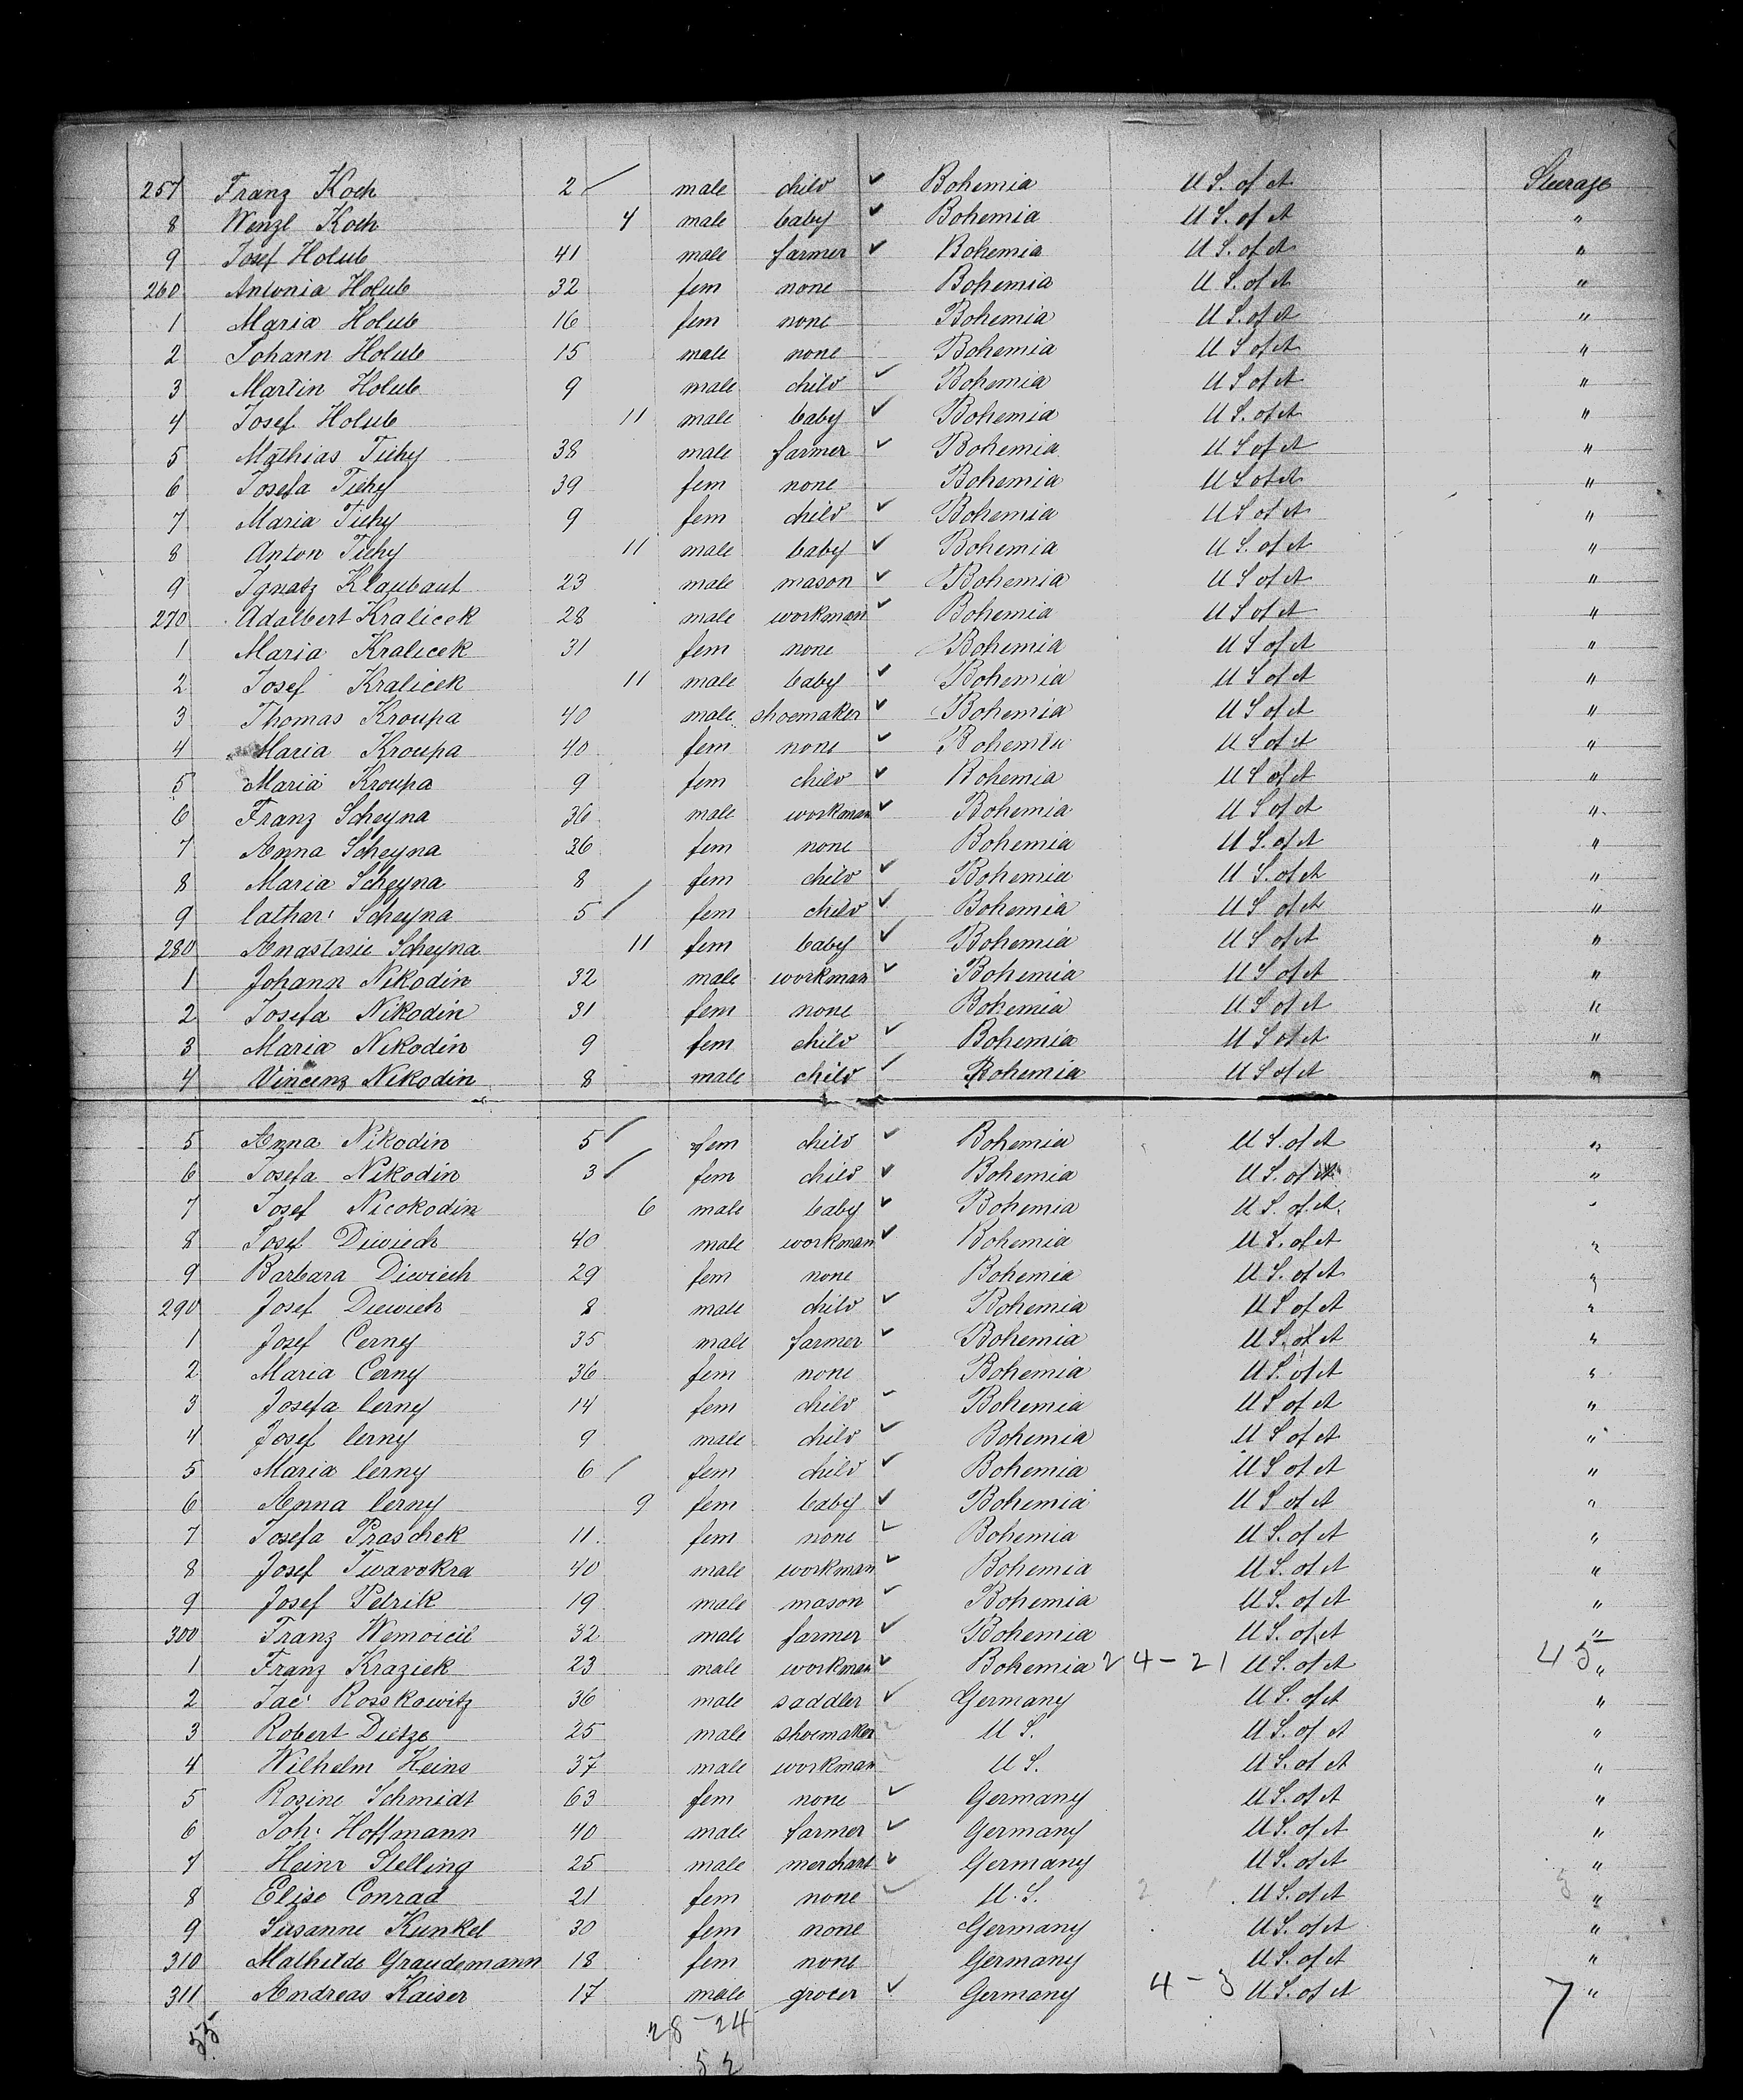 257 Franz Koch 2 male child Bohemia U S. of A Steerage
8 Wenzl Koch 4 male baby Bohemia U S. of A "
9 Josef Holub 41 male farmer Bohemia U S. of A "
260 Antonia Holub 32 fem none Bohemia U S. of A "
1 Maria Holub 16 fem none Bohemia U S. of A "
2 Johann Holub 15 male none Bohemia U S of A "
3 Martin Holub 9 male child Bohemia U S of A "
4 Josef Holub 11 male baby Bohemia U S. of A "
5 Mathias Tichy 38 male farmer Bohemia U S of A "
6 Josefa Tichy 39 fem none Bohemia U S of A "
7 Maria Tichy 9 fem child Bohemia U S of A "
8 Anton Tichy 11 male baby Bohemia U S. of A "
9 Ignatz Klaubaut 23 male mason Bohemia U S of A "
270 Adalbert Kralicek 28 male workman Bohemia U S of A "
1 Maria Kralicek 31 fem none Bohemia U S of A "
2 Josef Kralicek 11 male baby Bohemia U S of A "
3 Thomas Kroupa 40 male shoemaker Bohemia U S of A "
4 Maria Kroupa 40 fem none Bohemia U S of A "
5 Maria Kroupa 9 fem child Bohemia U S of A "
6 Franz Scheyna 36 male workman Bohemia U S of A "
7 Anna Scheyna 36 fem none Bohemia U S. of A "
8 Maria Scheyna 8 fem child Bohemia U S. of A "
9 Cathar: Scheyna 5 fem child Bohemia U S of A "
280 Anastasie Scheyna 11 fem baby Bohemia U S of A "
1 Johann Nikodin 32 male workman Bohemia U S of A "
2 Josefa Nikodin 31 fem none Bohemia U S of A "
3 Maria Nikodin 9 fem child Bohemia U S of A "
4 Vincenz Nikodin 8 male child Bohemia U S of A "
5 Anna Nikodin 5 fem child Bohemia U S. of A "
6 Josefa Nikodin 3 fem child Bohemia U S. of A "
7 Josef Nicokodin 6 male baby Bohemia U S. of A. "
8 Josef Diewich 40 male workman Bohemia U S. of A "
9 Barbara Diewich 29 fem none Bohemia U S. of A "
290 Josef Diewich 8 male child Bohemia U S of A "
1 Josef Cerny 35 male farmer Bohemia U S. of A "
2 Maria Cerny 36 fem none Bohemia U S. of A "
3 Josefa Cerny 14 fem child Bohemia U S of A "
4 Josef Cerny 9 male child Bohemia U S of A "
5 Maria Cerny 6 fem child Bohemia U S of A "
6 Anna Cerny 9 fem baby Bohemia U S of A "
7 Josefa Praschek 11 fem none Bohemia U S. of A "
8 Josef Twavokra 40 male workman Bohemia U S. of A "
9 Josef Petrik 19 male mason Bohemia U S. of A "
300 Franz 32 male farmer Bohemia U S. of A "
1 Franz Kraziek 23 male workman Bohemia 24-21 U S. of A 45 "
2 Jac: Rosskowitz 36 male saddler Germany U S. of A "
3 Robert Dietze 25 male shoemaker U S. U S. of A "
4 Wilhelm Heins 37 male workman U S. U S. of A "
5 Rosine Schmidt 63 fem none Germany U S. of A "
6 Joh: Hoffmann 40 male farmer Germany U S. of A "
7 Heinr Stelling 25 male merchant Germany U S. of A "
8 Elise Conrad 21 fem none U. S. 2 U S. of A 3 "
9 Susanne Kunkel 30 fem none Germany U S. of A "
310 Mathilde Graudemann 18 fem none Germany U S. of A "
311 Andreas Kaiser 17 male grocer Germany 4-3 U S. of A 7 "
55 28-24
52